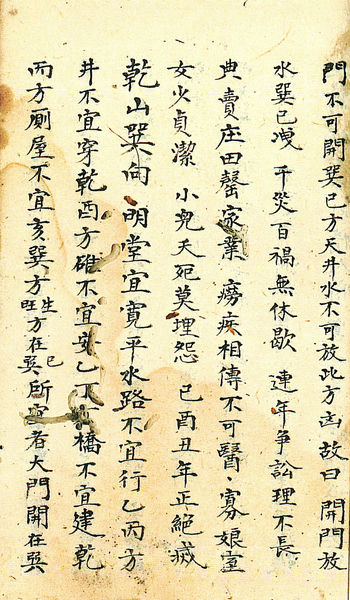 門不可開巽巳方天井水不可放此方凶故曰 開門放
水巽巳洩 千災百禍無休歇 連年爭訟理不長
典賣庄田罄家業 癆疾相傳不可醫 寡娘室
女火貞潔 小兒夭死莫埋怨 巳酉丑年正絕滅
乾山巽向 明堂宜寬平水路不宜行乙丙方
井不宜穿乾酉方碓不宜安乙丁橋不宜建乾
丙方厠屋不宜亥巽方生旺方在巽巳所宜者大門開在巽